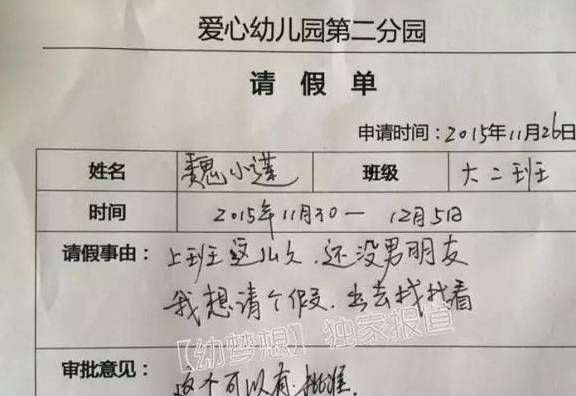 爱心幼儿园第二分园
请假单
申请时间:2015年11月26日
姓名 魏小莲 班级 大二班
时间 2015年11月30— 12月5日
请假事由: 上班这么久.还没男朋友
我想请个假.出去找找看
【幼梦想】独家报道
审批意见: 这个可以有.批准.